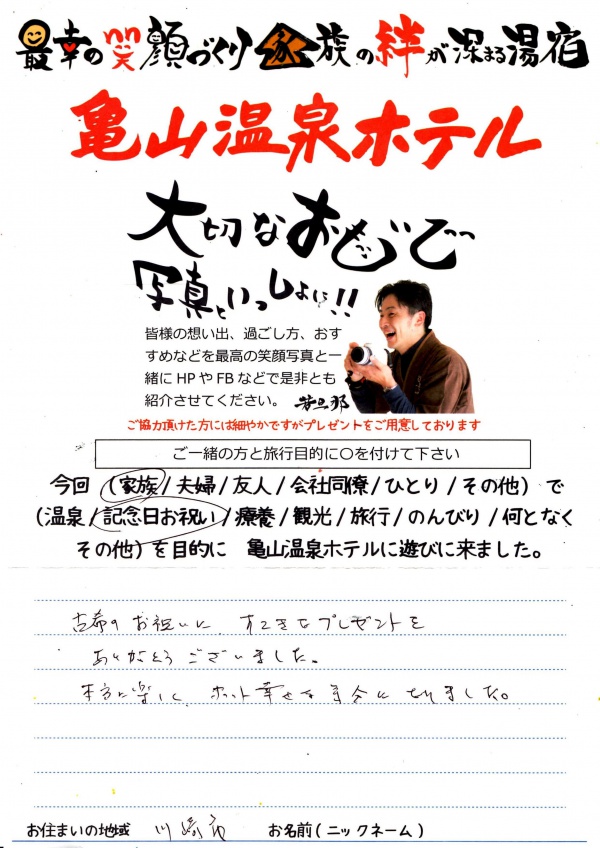 最幸の笑顔づくり家族の絆が深まる湯宿
亀山温泉ホテル
大切なおもいで
写真といっしょに!!
皆様の想い出、過ごし方、おす
すめなどを最高の笑顔写真と一
緒に HP や FB などで是非とも
紹介させてください。 若旦那
ご協力頂けた方には細やかですがプレゼントをご用意しております
ご一緒の方と旅行目的に○を付けて下さい
今回 (家族/夫婦/友人/会社同僚/ひとり/その他) で
(温泉/記念日お祝い/療養/観光/旅行/のんびり/何となく
その他) を目的に 亀山温泉ホテルに遊びに来ました。
古希のお祝いに、すてきなプレゼントを
ありがとうございました。
本当に楽しく、ホット幸せな気分になりました。
お住まいの地域 川崎市 お名前(ニックネーム)